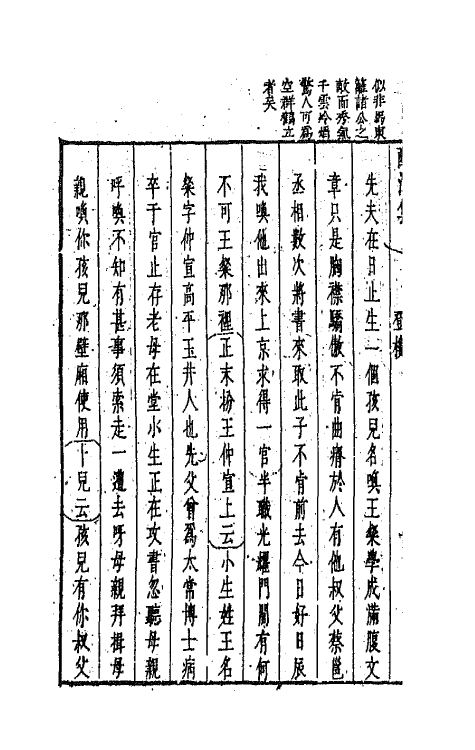 似非馬東
籬諸公之
敵而秀氣
干雲冷焰
驚人可為
空群鶴立
者矣
登樓
先夫在日止生一個孩兒名喚王粲學成滿腹文
章只是胸襟驕傲不肯曲脊於人有他叔父蔡邕
丞相數次將書來取此子不肯前去今日好日辰
我喚他出來上京求得一官半職光耀門閭有何
不可王粲那裡正末扮王仲宣上云小生姓王名
粲字仲宣高平玉井人也先父曾爲太常博士病
卒于官止存老母在堂小生正在攻書忽聽母親
呼喚不知有甚事須索走一遭去呀母親拜揖母
親喚你孩兒那壁廂使用卜兒云孩兒有你叔父